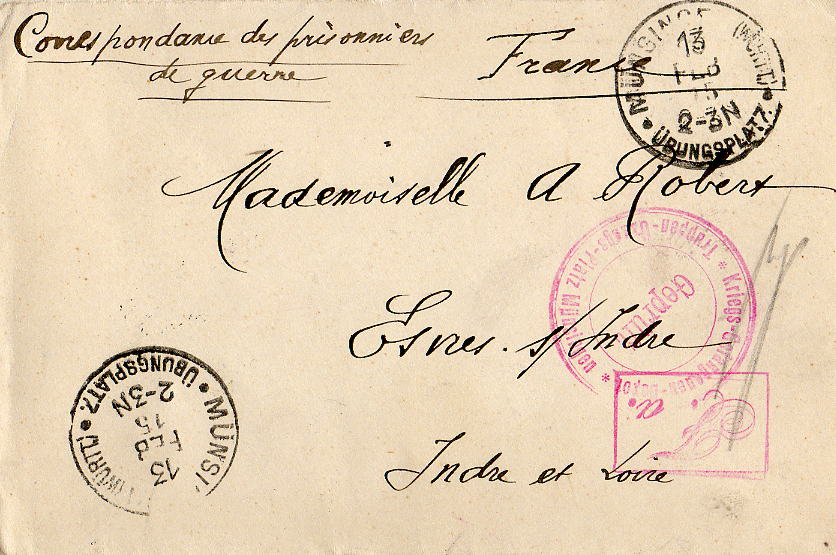 Correspondance des prisonniers
de guerre
France
MÜNSINGE (WÜRTT.)
13
FEB
15
2-3N
ÜBUNGSPLATZ.
Mademoiselle A Robert
Kriegs-Gefangenen-Depot * Truppen-Übungs-Platz
Geprüft
Esvres. s/Indre
F. a.
Indre et Loire
MÜNSI (WÜRTT.)
13
FEB
15
2-3N
ÜBUNGSPLATZ.